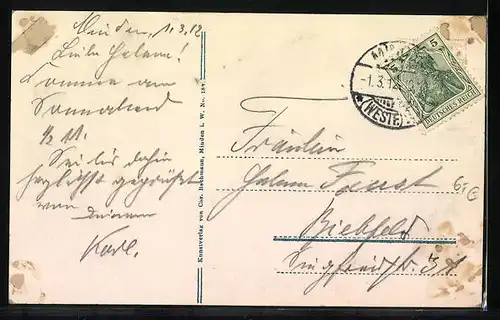 Minden, 1.3.12
Liebe Helene!
Komme am
Sonnabend
1/2 11.
Sei bis dahin
herzlichst gegrüßt
von Deinem
Karl.
Kunstverlag von Chr. Bethmann, Minden i. W. No.
-1.3.12
(WESTF.)
5
DEUTSCHES REICH
Fräulein
Helene Faust
Bielefeld
Siegfriedstr.